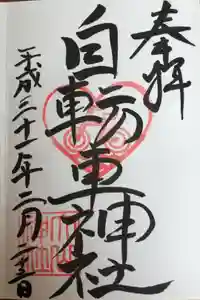 奉拝
自転車神社
平成三十一年二月二十三日